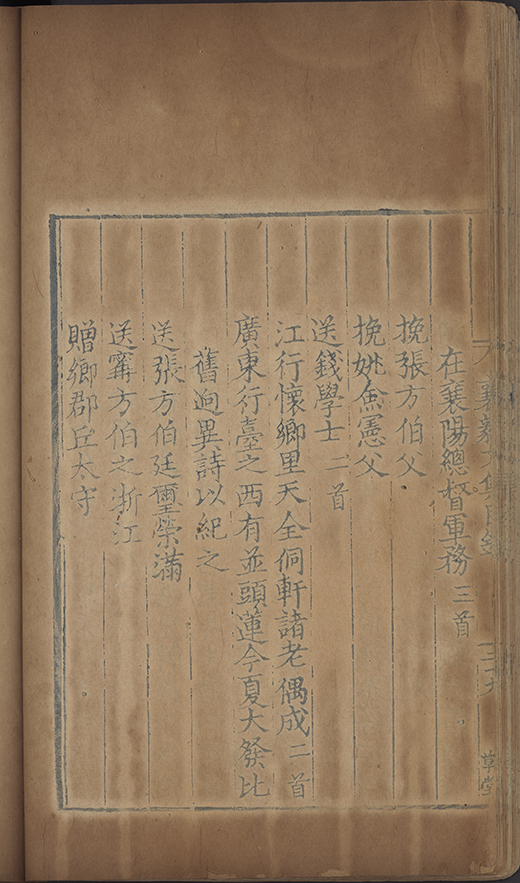 襄毅文集目錄 草堂
在襄陽總督軍務三首
挽張方伯父
挽姚僉憲父
送錢學士二首
江行懷鄉里天全侗軒諸老偶成二首
廣東行臺之西有並頭蓮今夏大發比
舊逈異詩以紀之
送張方伯廷璽榮滿
送甯方伯之浙江
贈鄉郡丘太守